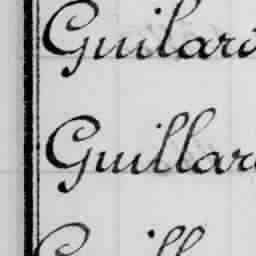 Guilard
Guillar